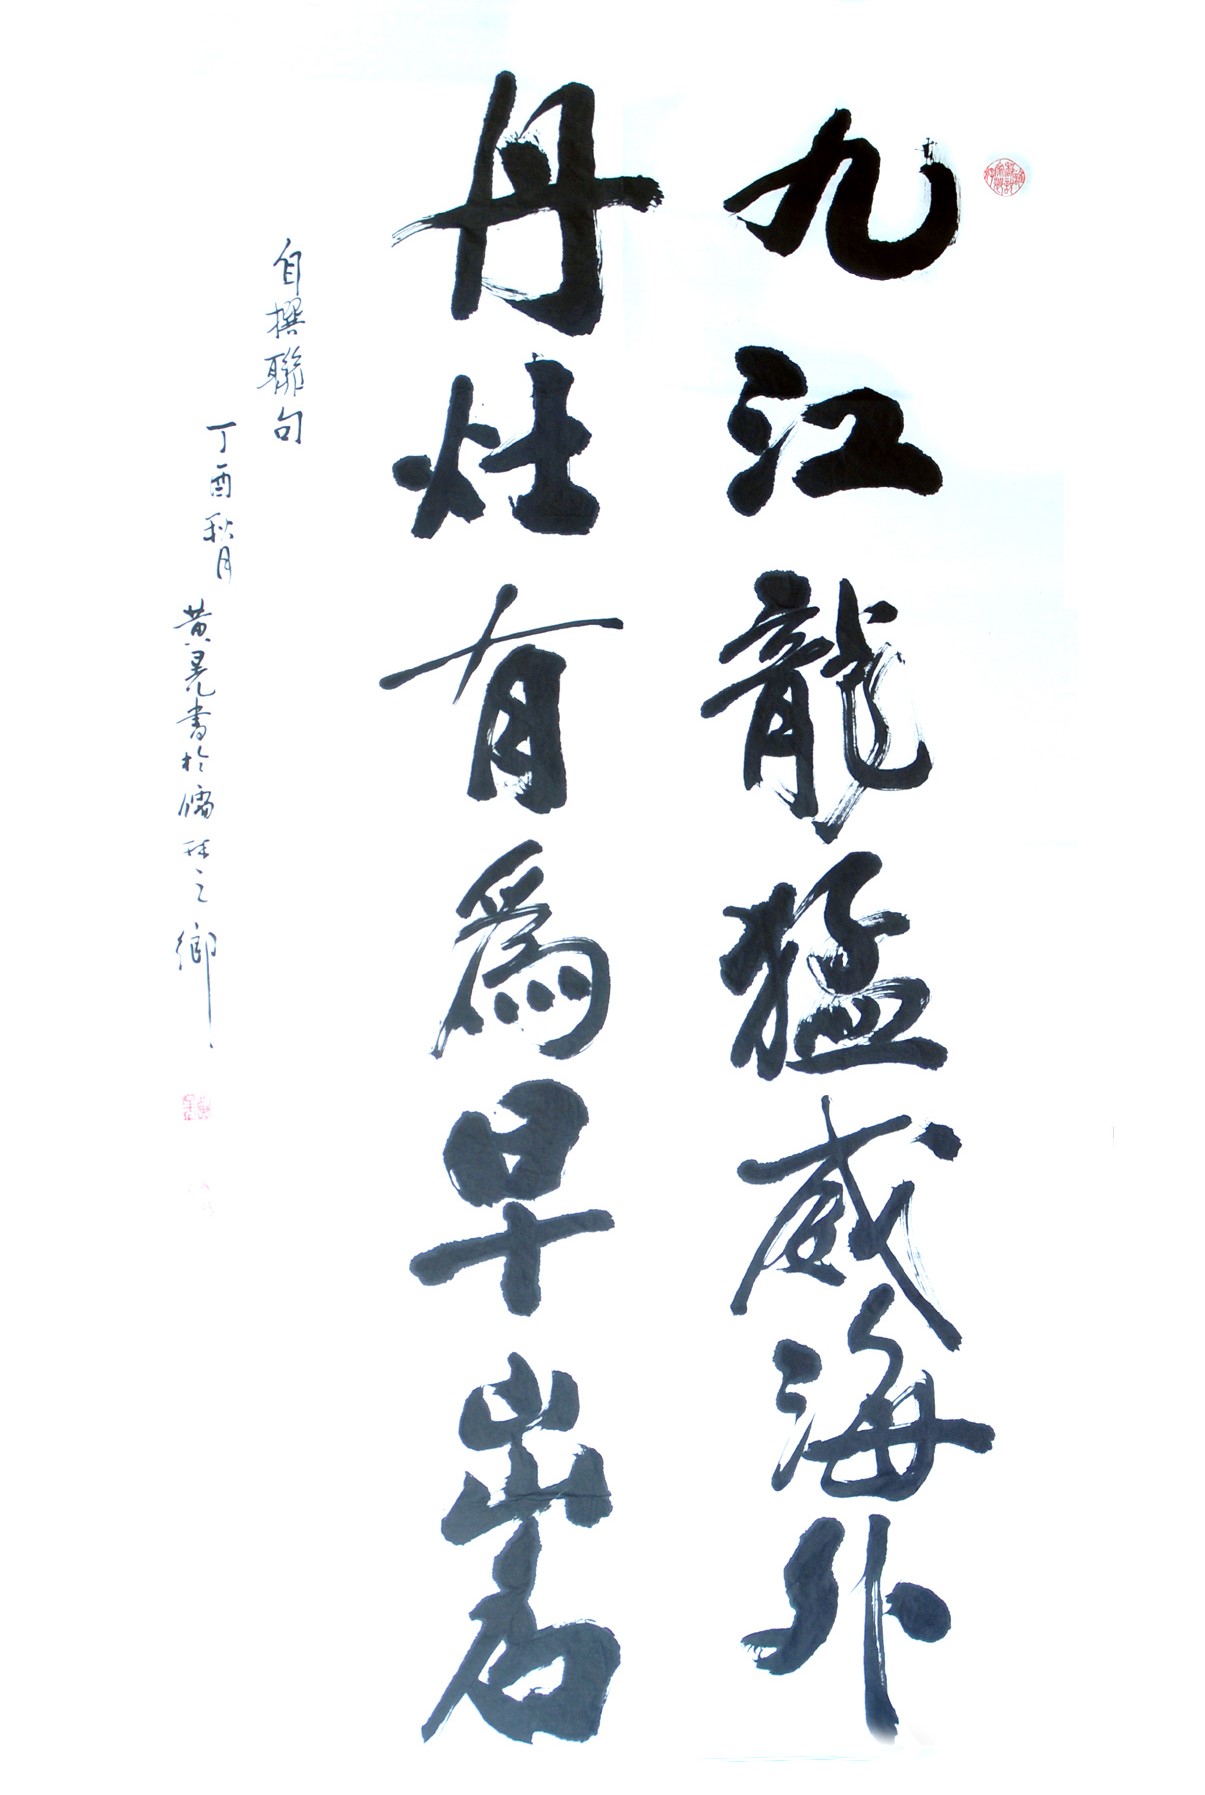 九江龍猛威海外
丹灶有爲早出名
自撰聯句
丁酉秋月
黄晃書於儒林之鄉